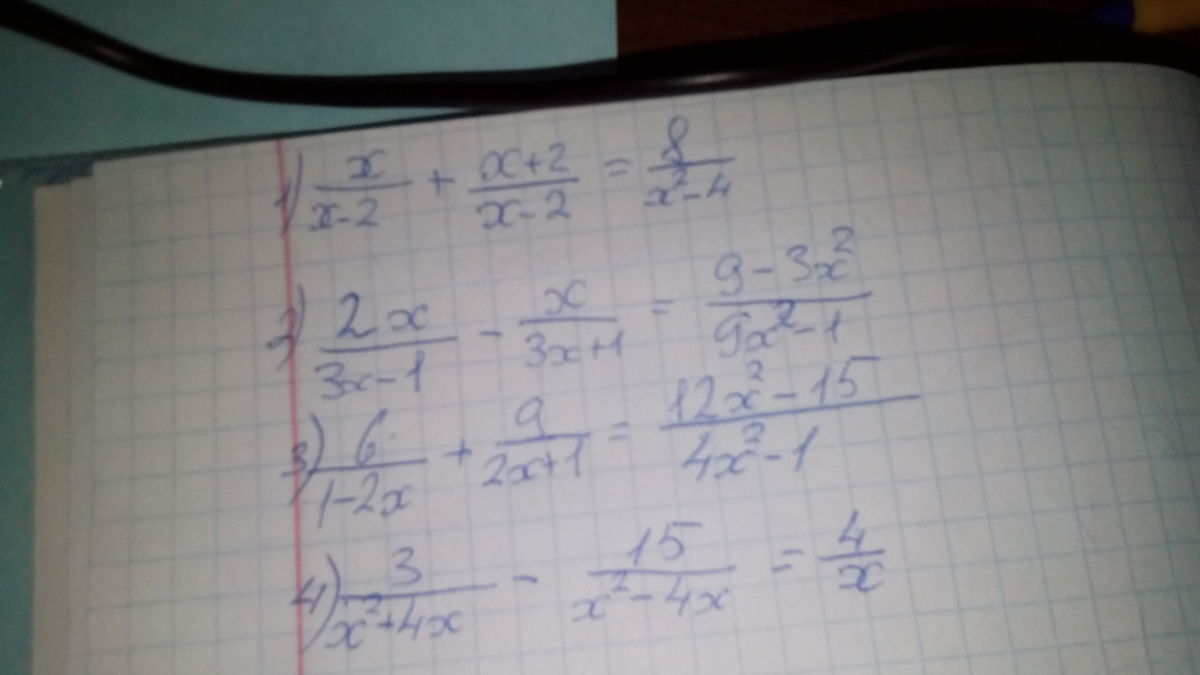 1) x/(x-2) + (x+2)/(x-2) = 8/(x²-4)
2) 2x/(3x-1) - x/(3x+1) = (9-3x²)/(9x²-1)
3) 6/(1-2x) + 9/(2x+1) = (12x²-15)/(4x²-1)
4) 3/(x²+4x) - 15/(x²-4x) = 4/x